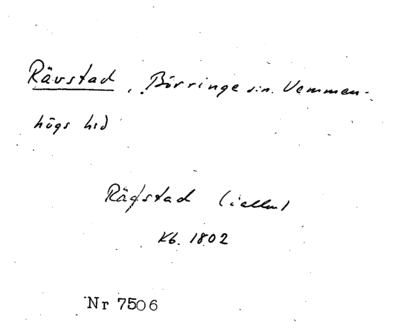 Rävstad, Börringe sn. Vemmen-
högs hd
Rägstad
Kb. 1802
Nr 7506